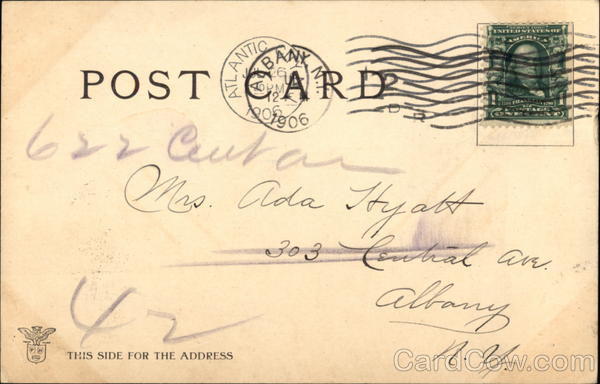 POST CARD
ATLANTIC
ALBANY, N.Y.
1906
1906
UNITED STATES OF AMERICA
1 1
ONE CENT
622 Central
Mrs. Ada Hyatt
303 Central Ave.
Albany
N.Y.
42
THIS SIDE FOR THE ADDRESS
CardCow.com